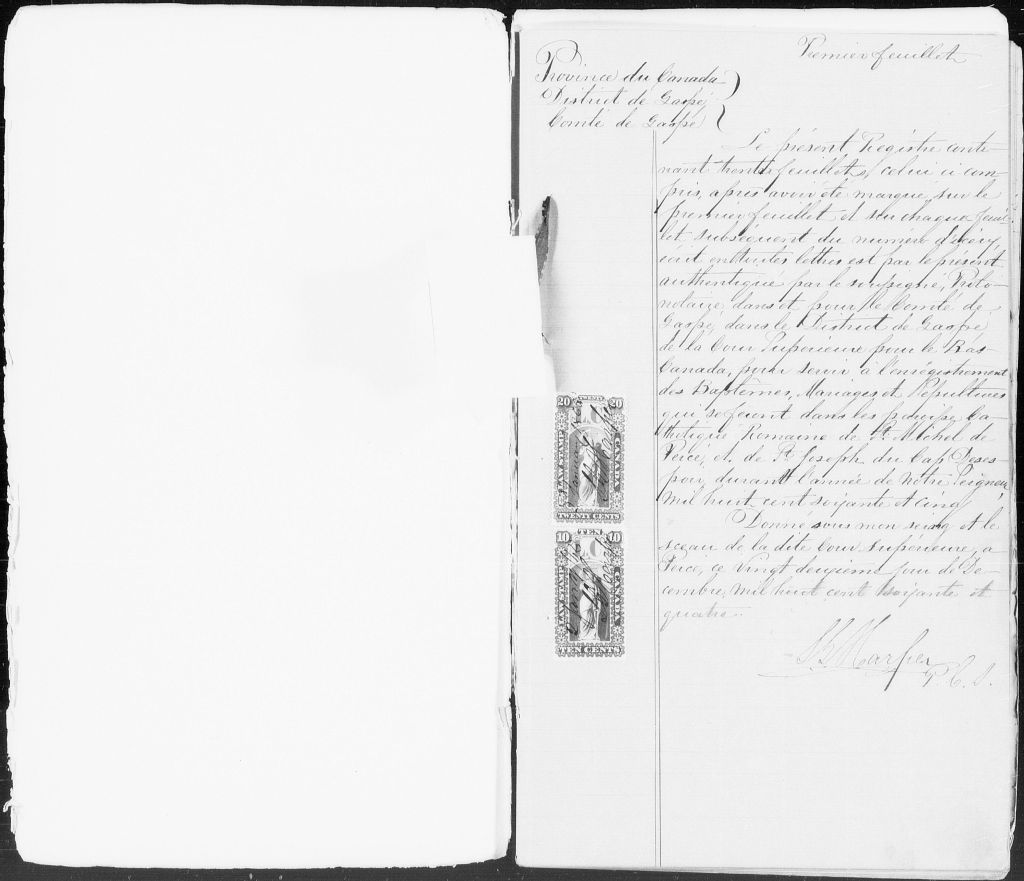 Premier feuillet
Province du Canada
District de Gaspé
Comté de Gaspé
Le présent Régistre conte-
nant trente feuillets, celui ci com-
pris, après avoir été marqué sur le
premier feuillet et sur chaque feuil-
let subséquent du numéro d'icelui,
écrit en toutes lettres est par le présent
authentiqué par le soussigné, Proto-
notaire, dans et pour le Comté de
Gaspé, dans le District de Gaspé,
de la Cour Supérieure pour le Bas-
Canada, pour servir à l'enrégistrement
des Baptêmes, Mariages et Sépultures
qui se feront dans les paroisses Ca-
tholique Romaine de St. Michel de
Percé, et de St. Joseph du Cap Déses-
poir, durant l'année de Notre Seigneur
mil huit cent soixante et cinq.
Donné sous mon seing et le
sceau de la dite Cour Supérieure, à
Percé, ce vingt deuxième jour de Dé-
cembre, mil huit cent soixante et
quatre.
Harper
P. C. S.
20 TWENTY 20
LC
LAW STAMP
CANADA
TWENTY CENTS
10 TEN 10
LC
LAW STAMP
CANADA
TEN CENTS